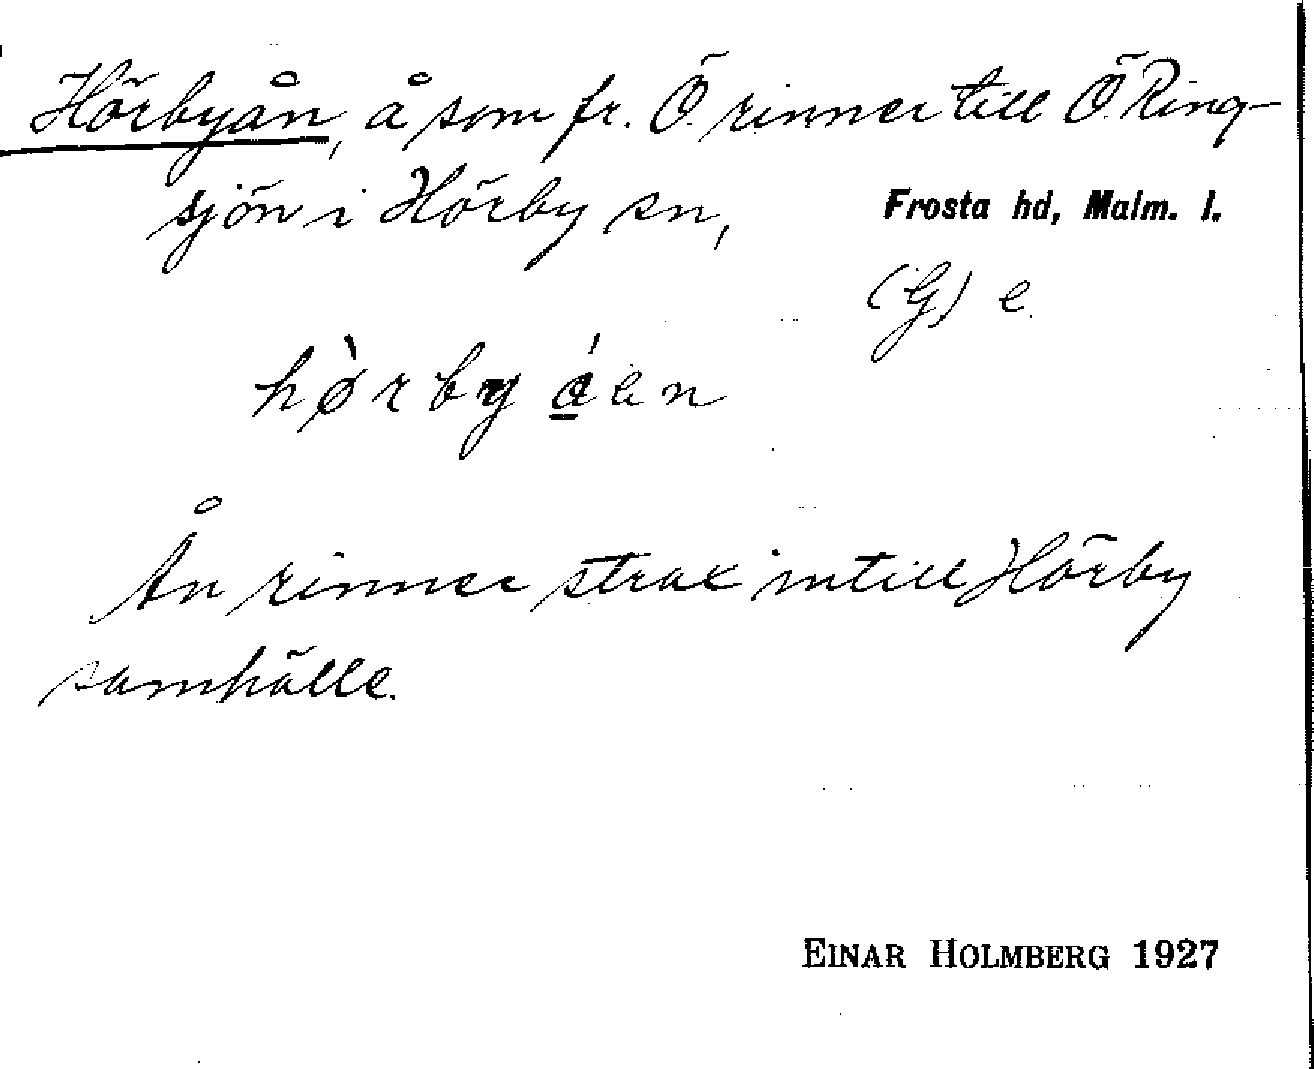 Hörbyån, å som fr. Ö. rinner till Ö. Ring-
sjön i Hörby sn, Frosta hd, Malm. l.
(G) e.
hø̀rby á̲en
Ån rinner strax intill Hörby
samhälle.
EINAR HOLMBERG 1927